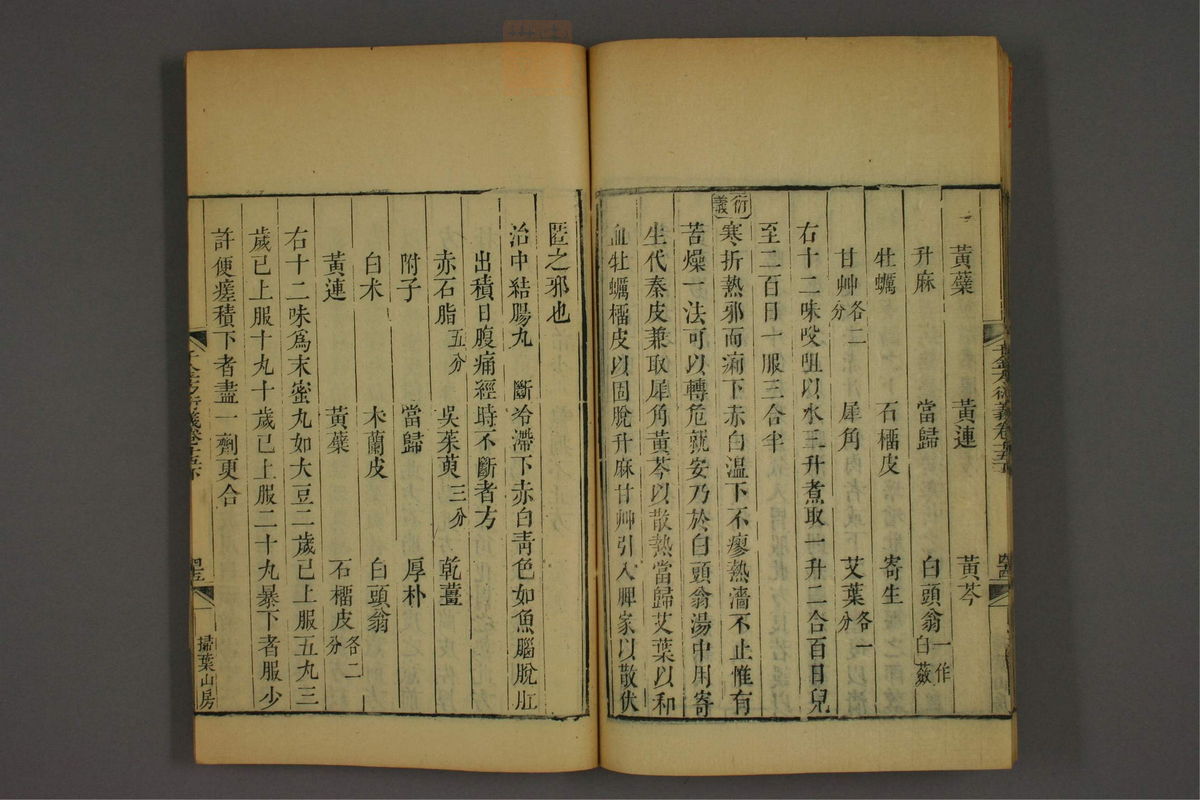 黃蘗 黃連 黃芩
升麻 當歸 白頭翁一作白蘞
牡蠣 石橊皮 寄生
甘艸各二分 犀角 艾葉各一分
右十二味㕮咀以水三升煮取一升二合百日兒
至二百日一服三合半
衍義 寒折熱邪而痢下赤白溫下不瘳熱濇不止惟有
苦燥一法可以轉危就安乃於白頭翁湯中用寄
生代秦皮兼取犀角黃芩以散熱當歸艾葉以和
血牡蠣橊皮以固脫升麻甘艸引入脾家以散伏
匿之邪也
治中結腸丸 斷冷滯下赤白青色如魚腦脫肛
出積日腹痛經時不斷者方
赤石脂五分 吳茱萸三分 乾薑
附子 當歸 厚朴
白朮 木蘭皮 白頭翁
黃連 黃蘗 石橊皮各二分
右十二味為末蜜丸如大豆二歲已上服五丸三
歲已上服十丸十歲已上服二十丸暴下者服少
許便瘥積下者盡一劑更合
千金方衍義卷十五下
掃葉山房